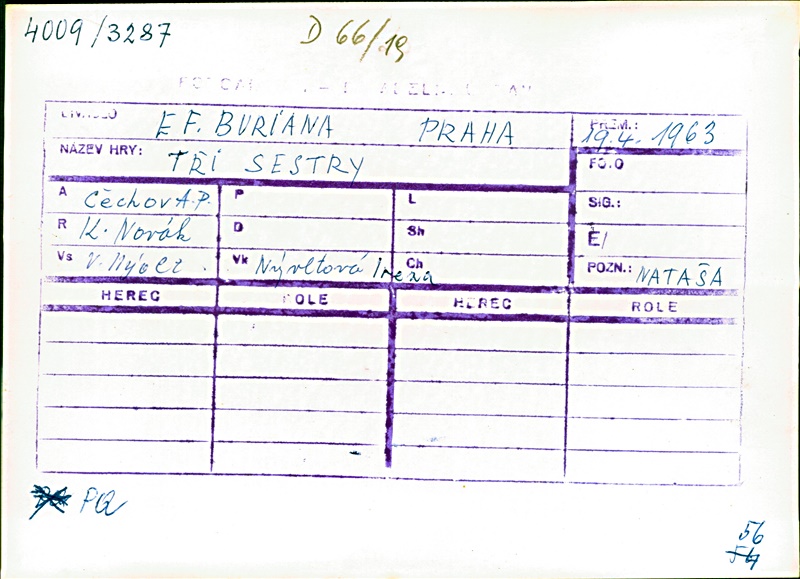 4009/3287
D 66/19
DIVADLO E F. BURIANA PRAHA PREM.: 19.4. 1963
NÁZEV HRY: TŘI SESTRY FO.O
A Čechov A.P. P L SIG.:
R K. Novák D Sh Č/
Vs V. Nývlt Vk Nývltová Irena Ch POZN.: NATAŠA
HEREC ROLE HEREC ROLE
PQ
56
54